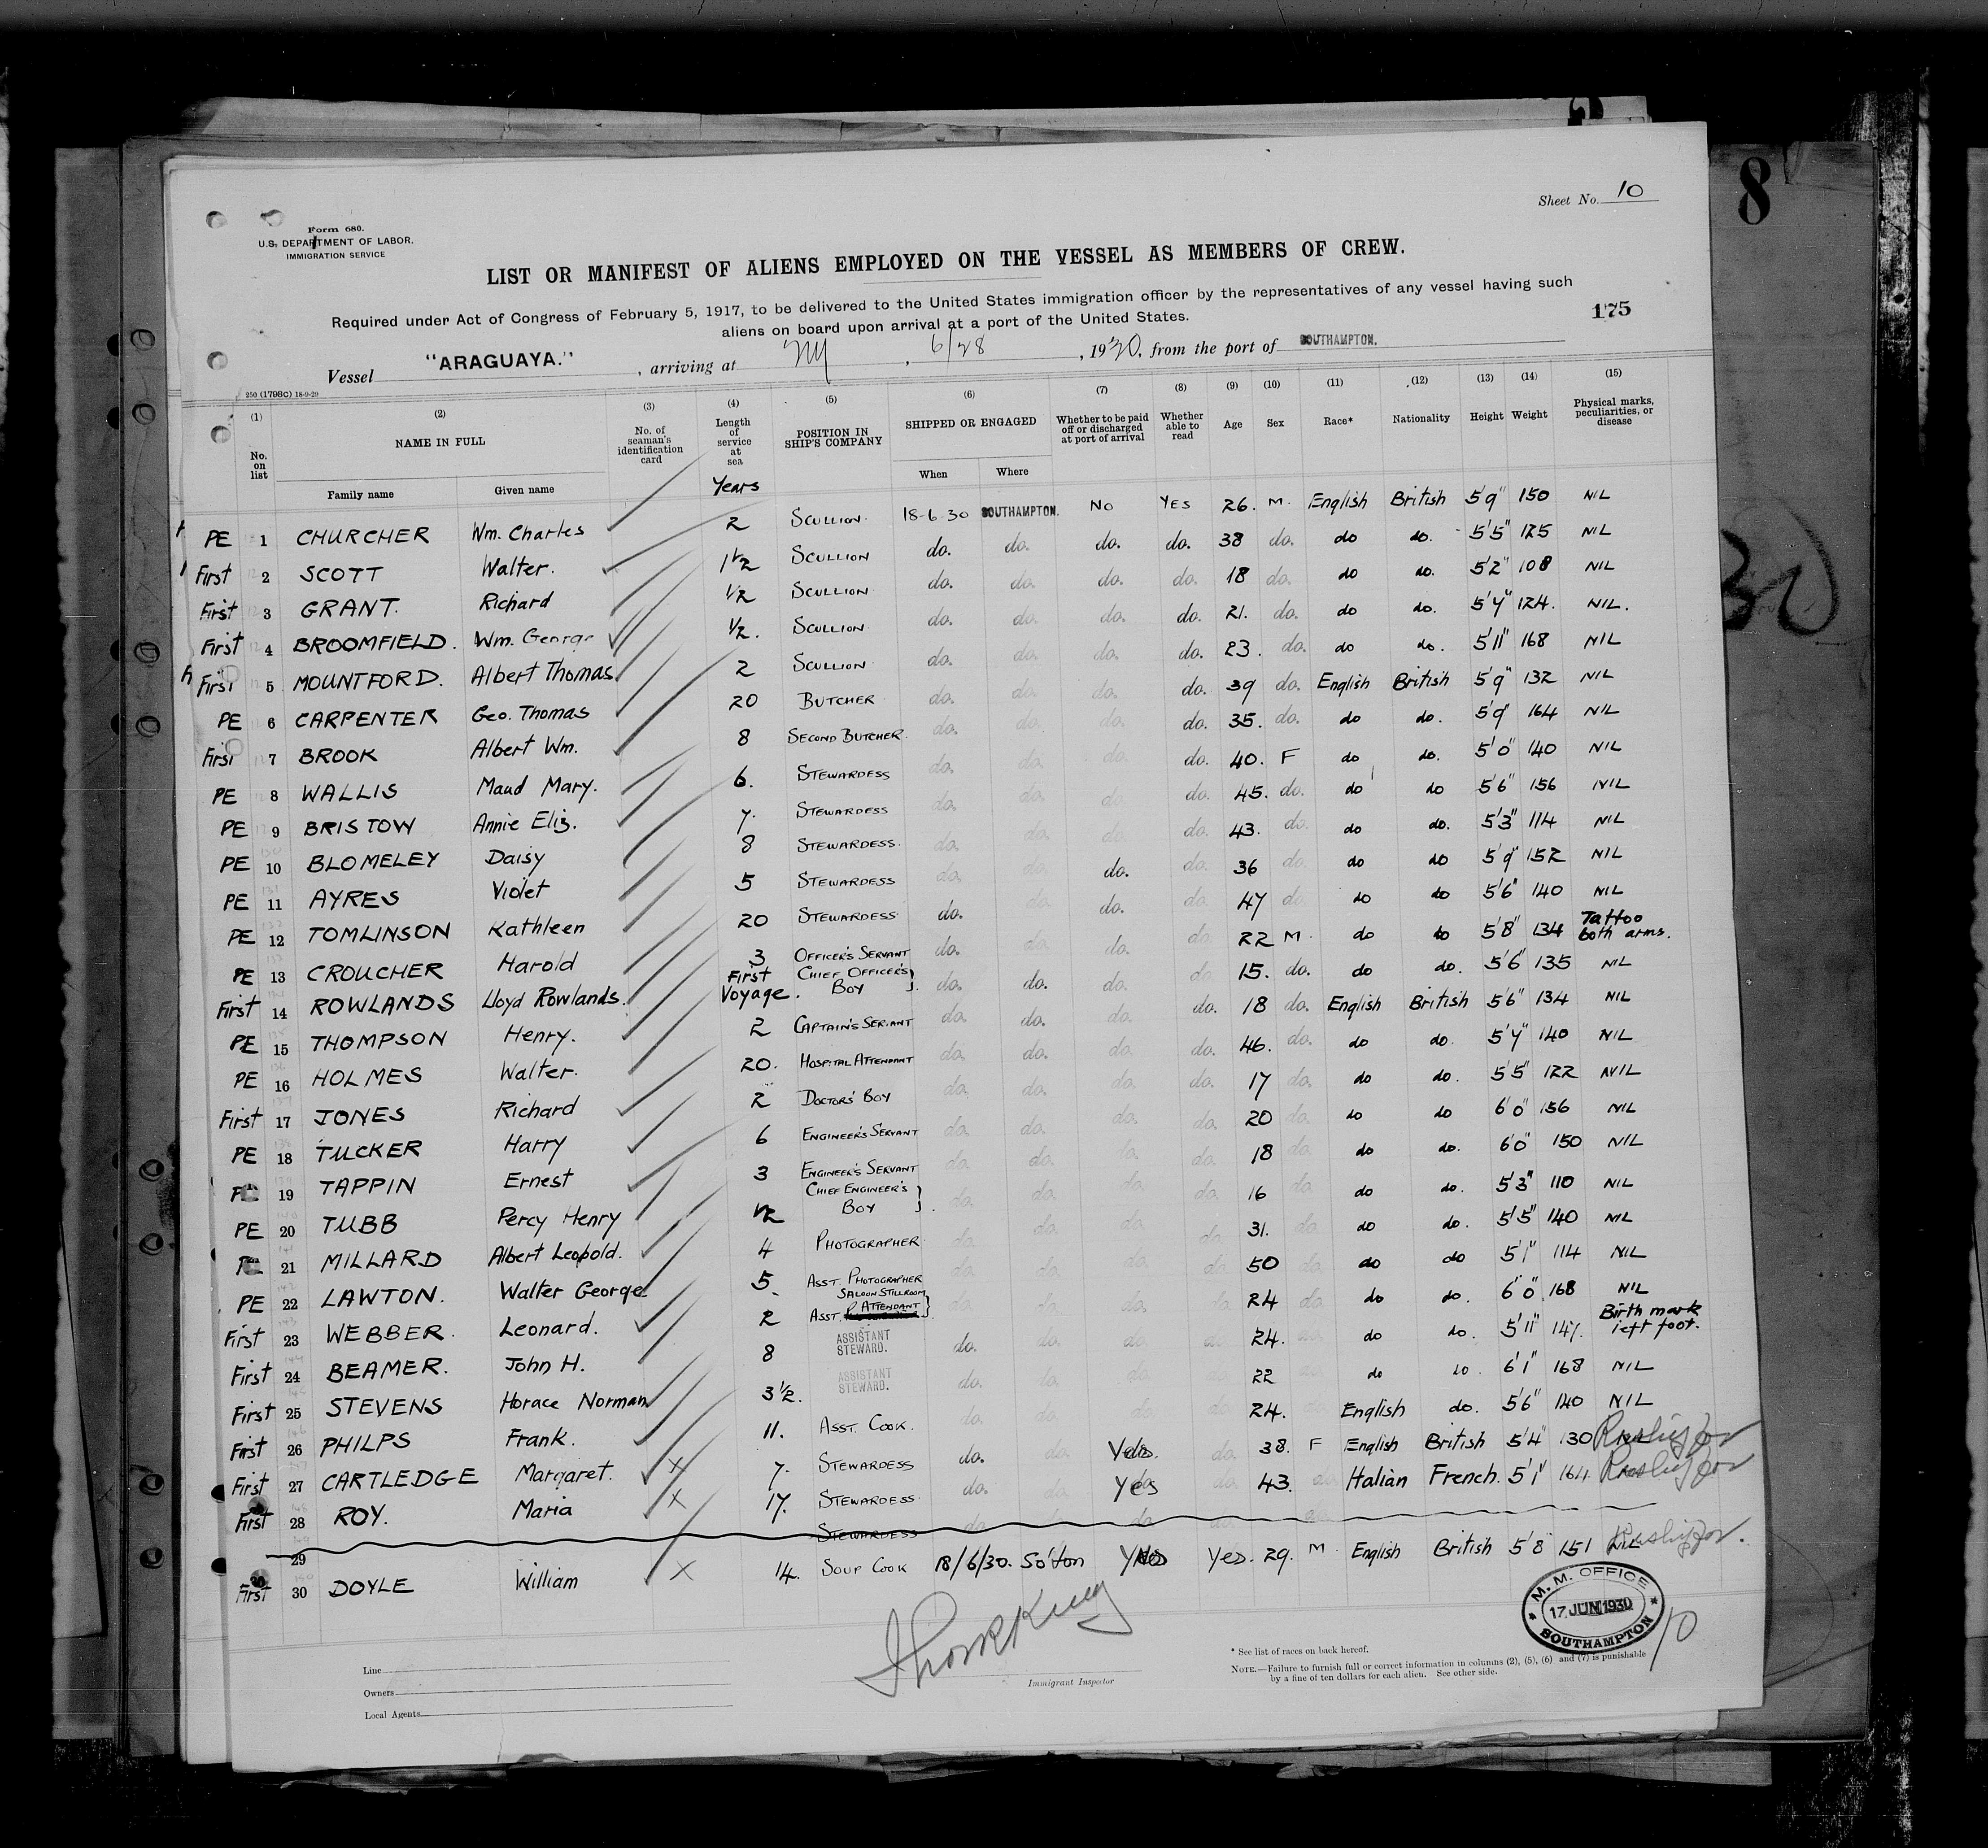 8
Sheet No. 10
Form 680.
U.S. DEPARTMENT OF LABOR.
IMMIGRATION SERVICE
LIST OR MANIFEST OF ALIENS EMPLOYED ON THE VESSEL AS MEMBERS OF CREW.
Required under Act of Congress of February 5, 1917, to be delivered to the United States immigration officer by the representatives of any vessel having such
aliens on board upon arrival at a port of the United States.
175
Vessel "ARAGUAYA." , arriving at NY , 6/28 , 1930, from the port of SOUTHAMPTON.
250 (1798C) 18-9-29
(1) (2) (3) (4) (5) (6) (7) (8) (9) (10) (11) (12) (13) (14) (15)
No. on list NAME IN FULL Family name Given name No. of seaman's identification card Length of service at sea POSITION IN SHIP'S COMPANY SHIPPED OR ENGAGED When Where Whether to be paid off or discharged at port of arrival Whether able to read Age Sex Race* Nationality Height Weight Physical marks, peculiarities, or disease
Years
PE 1 CHURCHER Wm. Charles 2 SCULLION 18-6-30 SOUTHAMPTON. NO YES 26. M. English British 5'9" 150 NIL
First 2 SCOTT Walter. 1 1/2 SCULLION do. do. do. do. 38 do. do do. 5'5" 125 NIL
First 3 GRANT. Richard 1/2 SCULLION do. do. do. do. 18 do. do do. 5'2" 108 NIL
First 4 BROOMFIELD. Wm. George 1/2. SCULLION do. do. do. do. 21. do. do do. 5'7" 124. NIL.
First 5 MOUNTFORD. Albert Thomas 2 SCULLION do. do. do. do. 23. do. do do. 5'11" 168 NIL
PE 6 CARPENTER Geo. Thomas 20 BUTCHER do. do. do. do. 39 do. English British 5'9" 132 NIL
First 7 BROOK Albert Wm. 8 SECOND BUTCHER. do. do. do. do. 35. do. do do. 5'9" 164 NIL
PE 8 WALLIS Maud Mary. 6. STEWARDESS do. do. do. do. 40. F do do. 5'0" 140 NIL
PE 9 BRISTOW Annie Eliz. 7. STEWARDESS do. do. do. do. 45. do. do do 5'6" 156 NIL
PE 10 BLOMELEY Daisy 8 STEWARDESS. do. do. do. do. 43. do. do do. 5'3" 114 NIL
PE 11 AYRES Violet 5 STEWARDESS do. do. do. do. 36 do. do do 5'9" 152 NIL
PE 12 TOMLINSON Kathleen 20 STEWARDESS do. do. do. 47 do. do do 5'6" 140 NIL
PE 13 CROUCHER Harold 3 OFFICER'S SERVANT do. do. do. do. 22 M. do do 5'8" 134 Tattoo both arms.
First 14 ROWLANDS Lloyd Rowlands. First Voyage. CHIEF OFFICER'S BOY do. do. do. do. 15. do. do do. 5'6" 135 NIL
PE 15 THOMPSON Henry. 2 CAPTAIN'S SERVANT do. do. do. do. 18 do. English British 5'6" 134 NIL
PE 16 HOLMES Walter. 20. HOSPITAL ATTENDANT do. do. do. do. 46. do. do do. 5'7" 140 NIL
First 17 JONES Richard 2 DOCTORS' BOY do. do. do. do. 17 do. do do. 5'5" 122 NIL
PE 18 TUCKER Harry 6 ENGINEER'S SERVANT do. do. do. do. 20 do. do do 6'0" 156 NIL
PE 19 TAPPIN Ernest 3 ENGINEER'S SERVANT do. do. do. do. 18 do. do do. 6'0" 150 NIL
PE 20 TUBB Percy Henry 1/2 CHIEF ENGINEER'S BOY do. do. do. do. 16 do. do do. 5'3" 110 NIL
PE 21 MILLARD Albert Leopold. 4 PHOTOGRAPHER do. do. do. do. 31. do. do do. 5'5" 140 NIL
PE 22 LAWTON. Walter George 5. ASST. PHOTOGRAPHER do. do. do. do. 50 do. do do 5'1" 114 NIL
First 23 WEBBER. Leonard. 2 ASST. SALOON STILLROOM ATTENDANT do. do. do. do. 24 do. do do. 6'0" 168 NIL
First 24 BEAMER. John H. 8 ASSISTANT STEWARD. do. do. do. do. 24. do. do do. 5'11" 147. Birth mark left foot.
First 25 STEVENS Horace Norman 3 1/2. ASSISTANT STEWARD. do. do. do. do. 22 do do. 6'1" 168 NIL
First 26 PHILPS Frank. 11. ASST. COOK. do. do. do. do. 24. English do. 5'6" 140 NIL
First 27 CARTLEDGE Margaret. x 7. STEWARDESS do. do. Yes. do. 38. F English British 5'4" 130
First 28 ROY. Maria x 17. STEWARDESS do. do. Yes do. 43. do. Italian French. 5'1" 164
29 STEWARDESS do. do. do.
First 30 DOYLE William x 14. SOUP COOK 18/6/30. So'ton Yes Yes. 29. M English British 5'8 151 NIL
M. M. OFFICE
17 JUN 1930
SOUTHAMPTON
10
Line
Owners
Local Agents
Immigrant Inspector
* See list of races on back hereof.
NOTE.—Failure to furnish full or correct information in columns (2), (5), (6) and (7) is punishable
by a fine of ten dollars for each alien. See other side.